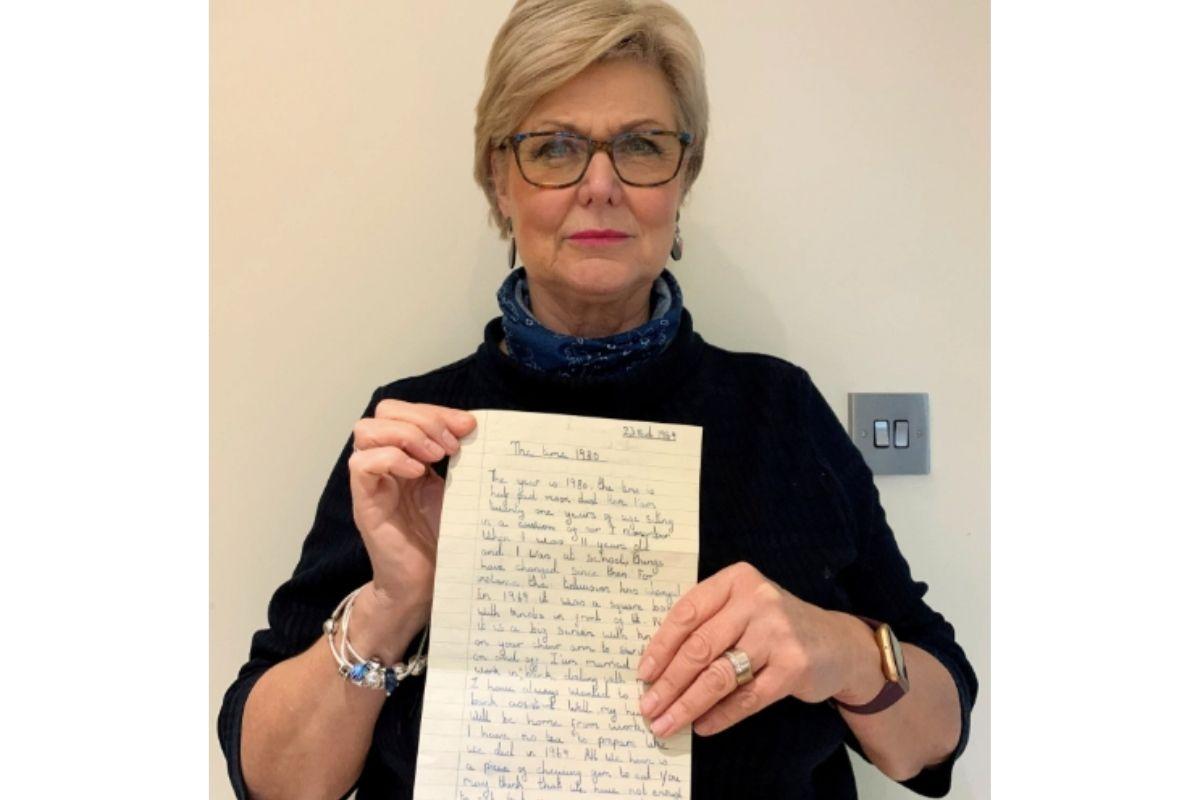 23 Feb 1969
The time 1980
The year is 1980. the time is
half past moon dust Here I am
twenty one years of age siting
in a cushion of air I remember
When I was 11 years old
and I was at school, things
have changed since then For
instance the television has changed
In 1969 it was a square box
with knobs in front of it.
it is a big screen with
on your chair arm to
on and off. I'am married
work in bank dealing with
I have always wanted to
bank assistant Well my
Will be home from work,
I have no tea to prepare like
we did in 1969. All we have is
a piece of chewing gum to eat You
may think that we have not enough